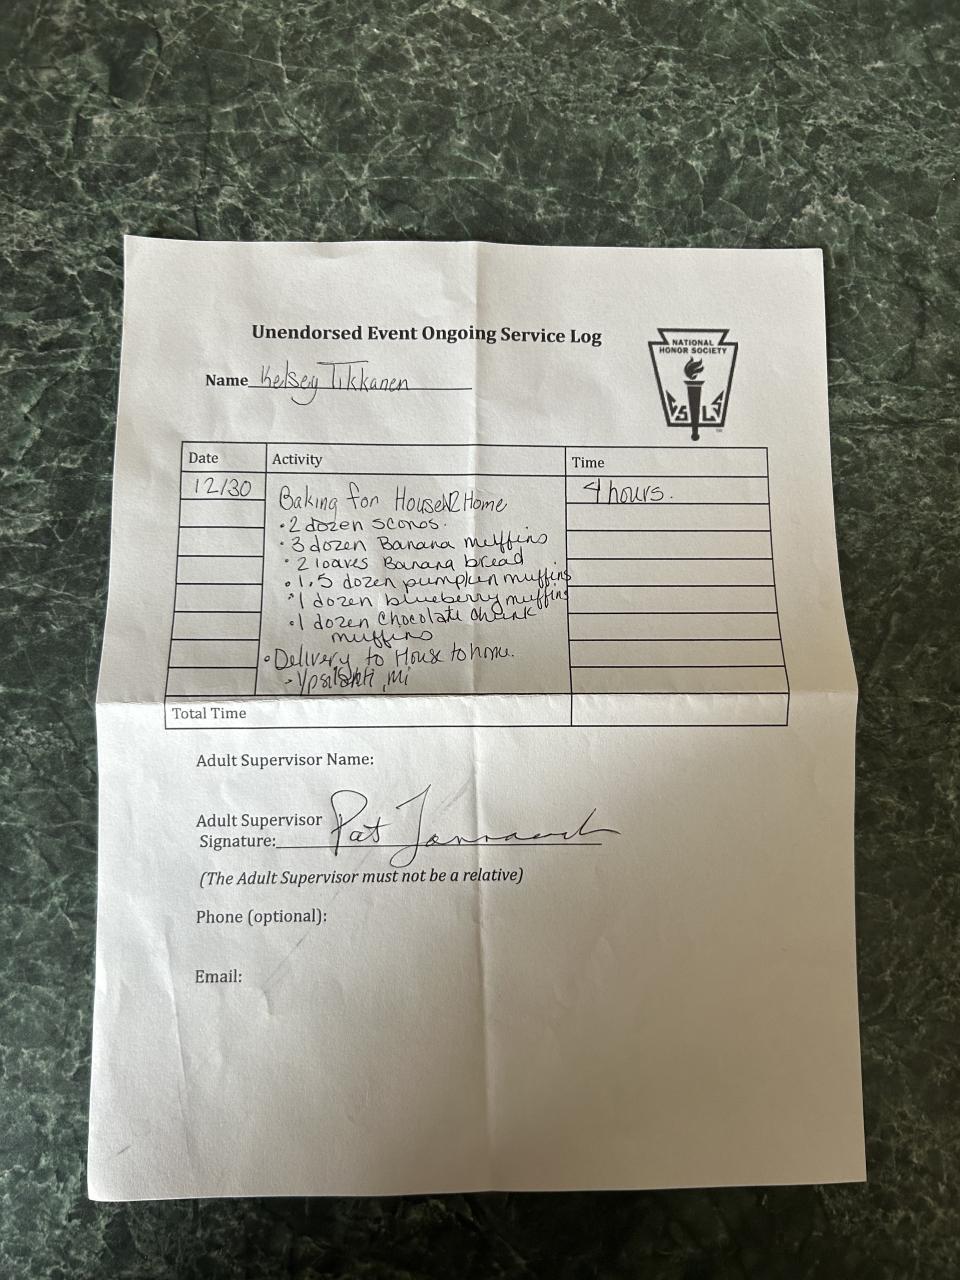 Unendorsed Event Ongoing Service Log
NATIONAL
HONOR SOCIETY
C S L S
Name Kelsey Tikkanen
Date Activity Time
12/30 Baking for HouseN2Home 4 hours.
• 2 dozen scones.
• 3 dozen Banana muffins
• 2 loaves Banana bread
• 1.5 dozen pumpkin muffins
• 1 dozen blueberry muffins
• 1 dozen Chocolate chunk
muffins
• Delivery to House to home.
- Ypsilanti, Mi
Total Time
Adult Supervisor Name:
Adult Supervisor
Signature: Pat
(The Adult Supervisor must not be a relative)
Phone (optional):
Email: